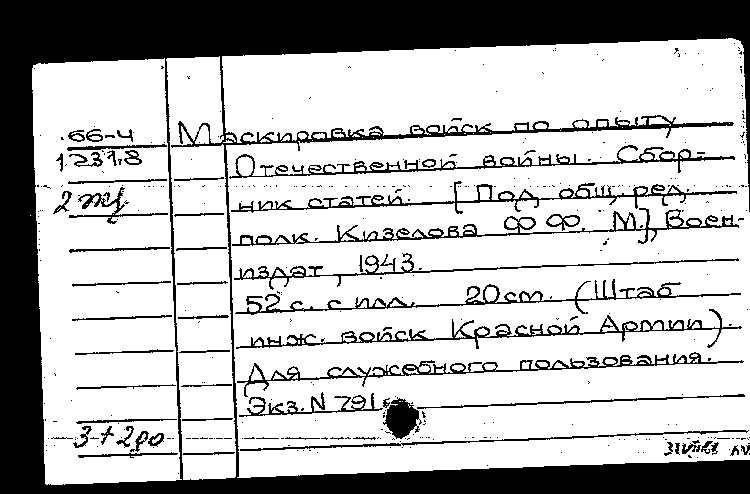 66-4 Маскировка войск по опыту
1237.8 Отечественной войны. Сбор-
2 экз ник статей. [Под общ. ред.
полк. Кизелова Ф Ф. М.], Воен-
издат, 1943.
52 с. с илл. 20 cm. (Штаб
инж. войск Красной Армии).
Для служебного пользования.
Экз. N 791
3+2ро